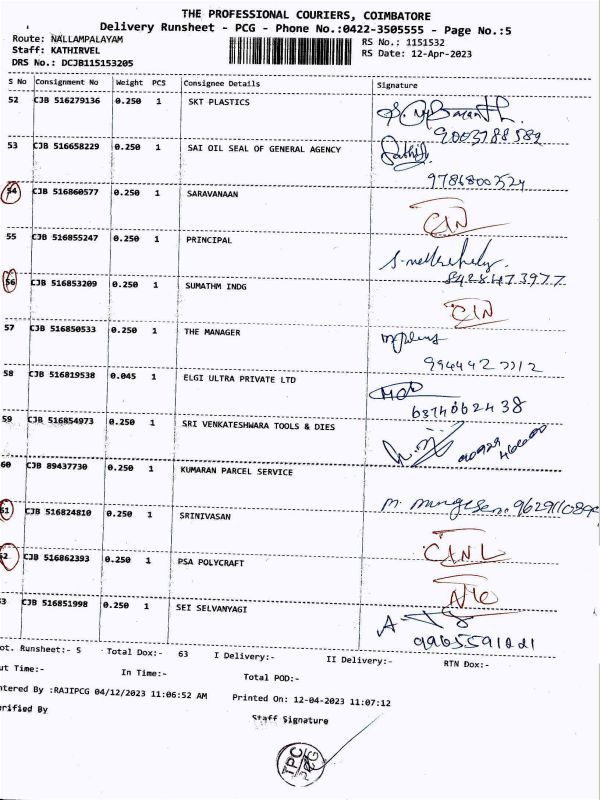 THE PROFESSIONAL COURIERS, COIMBATORE
Delivery Runsheet - PCG - Phone No.:0422-3505555 - Page No.:5
Route: NALLAMPALAYAM
RS No.: 1151532
Staff: KATHIRVEL
RS Date: 12-Apr-2023
DRS No.: DCJB115153205
S No Consignment No Weight PCS Consignee Details Signature
52 CJB 516279136 0.250 1 SKT PLASTICS
9003788582
53 CJB 516658229 0.250 1 SAI OIL SEAL OF GENERAL AGENCY
9786800524
54 CJB 516860577 0.250 1 SARAVANAAN
CIN
55 CJB 516855247 0.250 1 PRINCIPAL
8428473977
56 CJB 516853209 0.250 1 SUMATHM INDG
CIN
57 CJB 516850533 0.250 1 THE MANAGER
58 CJB 516819538 0.045 1 ELGI ULTRA PRIVATE LTD
6374862438
59 CJB 516854973 0.250 1 SRI VENKATESHWARA TOOLS & DIES
60 CJB 89437730 0.250 1 KUMARAN PARCEL SERVICE
51 CJB 516824810 0.250 1 SRINIVASAN
52 CJB 516862393 0.250 1 PSA POLYCRAFT
3 CJB 516851998 0.250 1 SEI SELVANYAGI
ot. Runsheet:- 5 Total Dox:- 63 I Delivery:- II Delivery:- RTN Dox:-
ut Time:- In Time:- Total POD:-
ntered By :RAJIPCG 04/12/2023 11:06:52 AM Printed On: 12-04-2023 11:07:12
erified By
Staff Signature
TPC
PCG